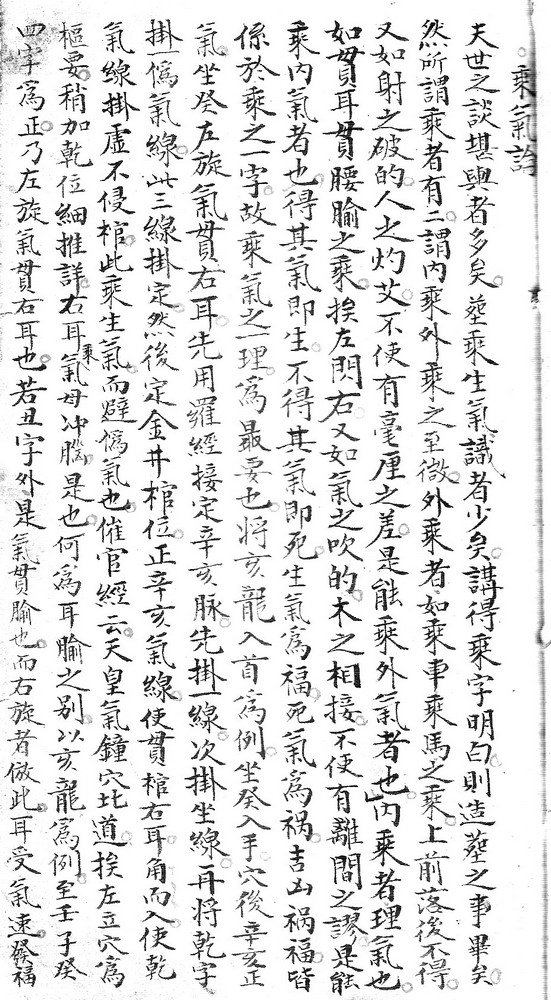 乘氣論
夫世之談堪輿者多矣葬乘生氣識者少矣講得乘字明白則造葬之事畢矣
然所謂乘者有二謂內乘外乘之至微外乘者如乘車乘馬之乘上前落後不得
又如射之破的人之灼艾不使有毫厘之差是能乘外氣者也內乘者理氣也
如貫耳貫腰腧之乘挨左閃右又如氣之吹的木之相接不使有離間之謬是能
乘內氣者也得其氣即生不得其氣即死生氣為福死氣為禍吉凶禍福皆
係於乘之一字故乘氣之一理為最要也將亥龍入首為例坐癸入手穴後辛亥正
氣坐癸左旋氣貫右耳先用羅經接定辛亥脉先掛一線次掛坐線再將乾字
掛一僞氣線此三線掛定然後定金井棺位正辛亥氣線使貫棺右耳角而入使乾
氣線掛虛不侵棺此乘生氣而避僞氣也催官經云天皇氣鐘穴北道挨左立穴為
樞要稍加乾位細推詳右耳乘氣毋冲腦是也何為耳腧之别以亥龍為例至壬子癸
四字為正乃左旋氣貫右耳也若丑字外是氣貫腧也而右旋者倣此耳受氣速發福